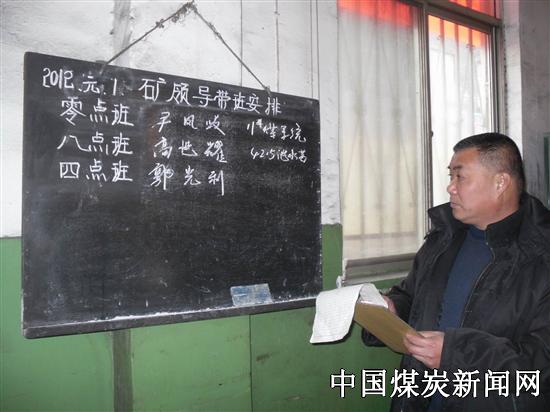 2012.元.1 矿领导带班安排
零点班 尹凤岐 11#煤系统
八点班 高世耀 4215泡水高
四点班 郭光利
中国煤炭新闻网